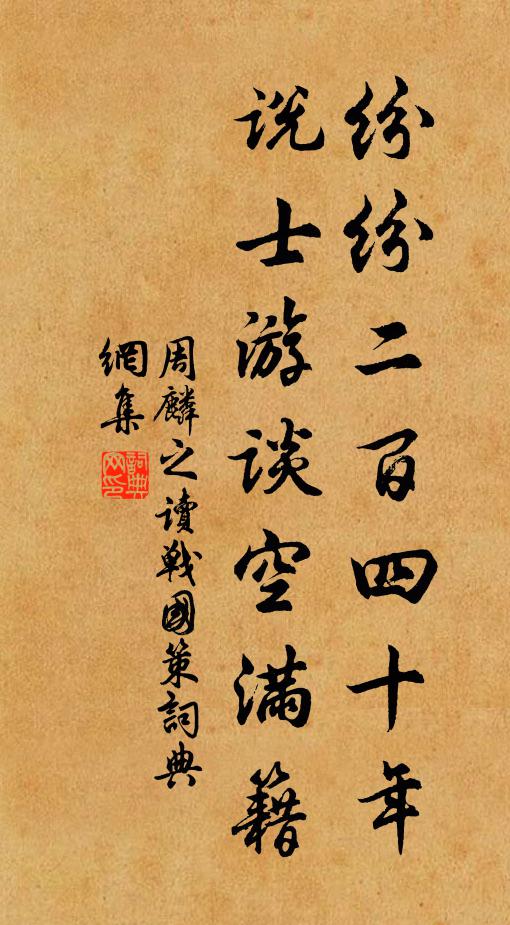 纷纷二百四十年
说士游谈空满籍
周麟之读戰國策词典
網集
詞典网印